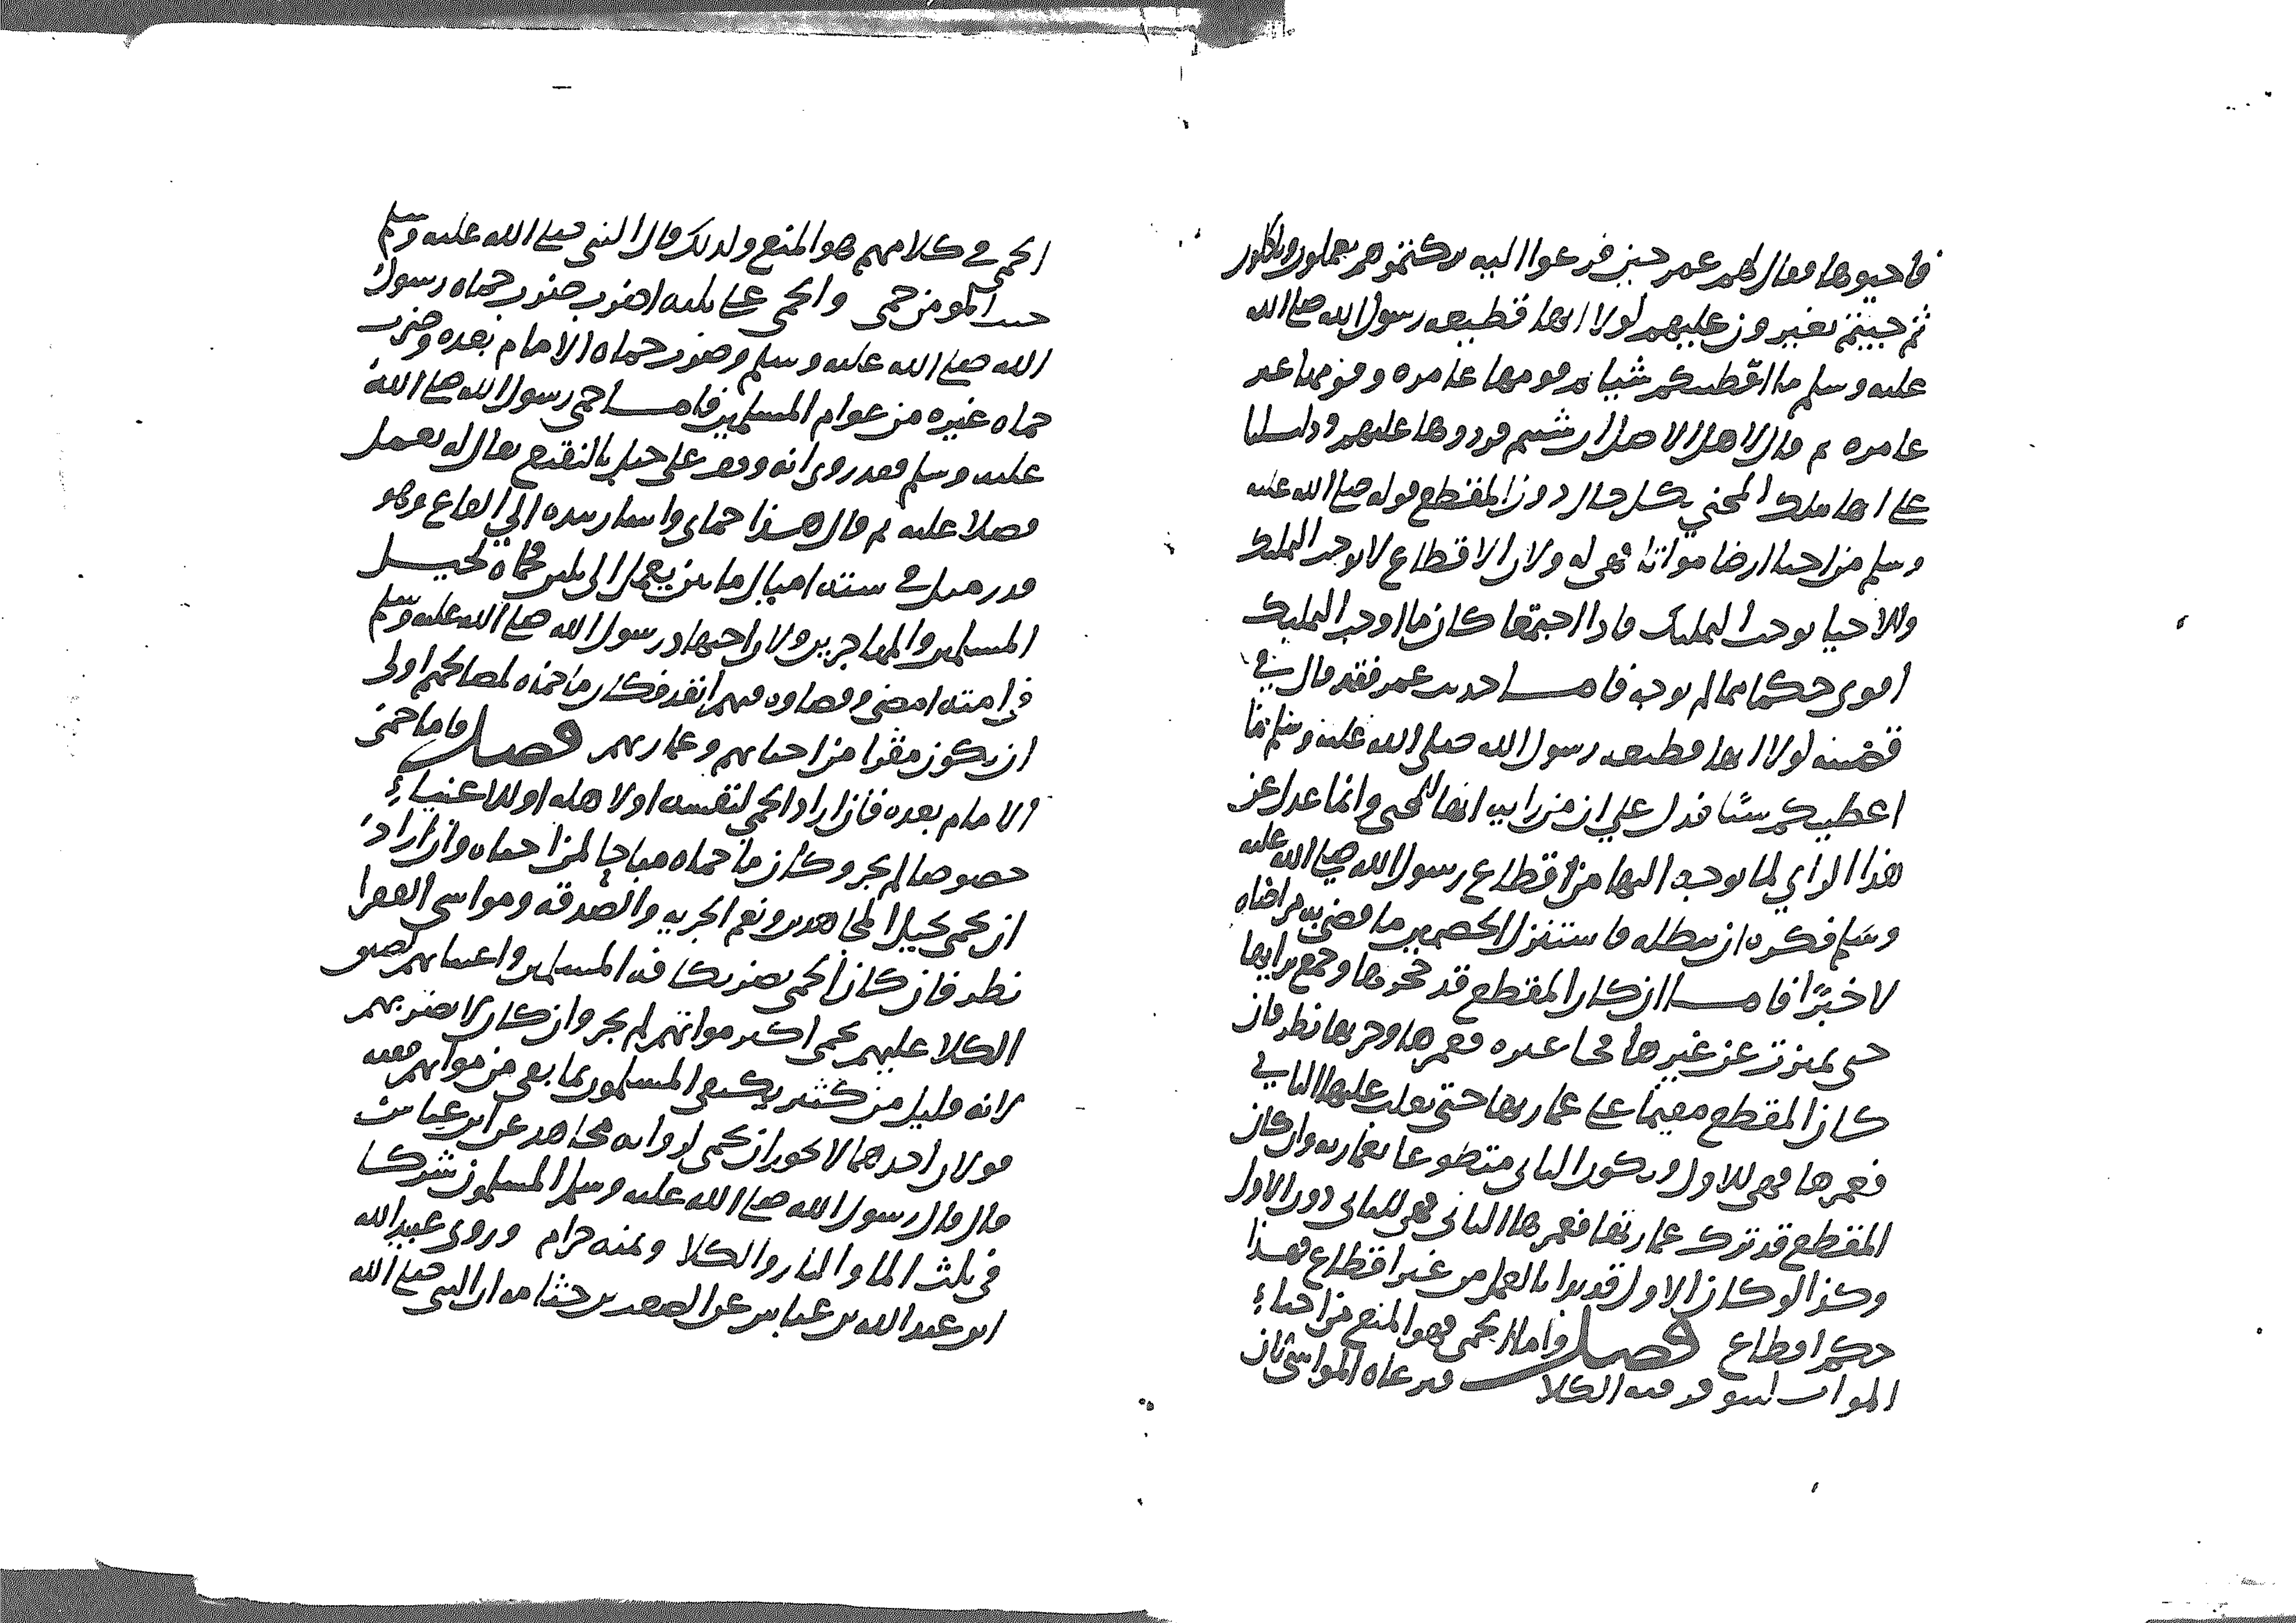 فاحيوها فقال لهم عمر حين فزعوا اليه تركتموهم يعملون وياكلون
ثم جيتم تغيرون عليهم لولا انها قطيعه رسول الله صلى الله
عليه وسلم ما اقطعتكم شيا ثم قومها عامره وقومها غير
عامره ثم قال لاهل الاصل ان شيتم فردوا عليهم ودليلنا
على انها ملك المحيي بكل حال دون المقطع قوله صلى الله عليه
وسلم من احيا ارضا مواتا فهي له ولان الاقطاع لا يوجب التمليك
والاحيا يوجب التمليك فاذا اجتمعا كان ما اوجب التمليك
اقوى حكما مما لم يوجبه فاما حديث عمر فقد قال في
قضيته لولا انها قطيعه رسول الله صلى الله عليه وسلم ما
اعطيتكم شيًا فدل على ان من رايه انها للمحيي وانما عدل عن
هذا الراي لما توجه اليها من اقطاع رسول الله صلى الله عليه
وسلم فكره ان يبطله فاستنزل الخصمين بما قضى به مراضاه
لا خبرًا فاما ان كان المقطع قد حجرها وجمع ترابها
حتى تميزت عن غيرها فجا غيره فعمرها وحرثها نظر فان
كان المقطع مقيما على عمارتها حتى تغلب عليها الثاني
فعمرها فهي للاول ويكون الثاني متطوعا بعمارته وان كان
المقطع قد ترك عمارتها فعمرها الثاني فهي للثاني دون الاول
وكذا لو كان الاول قد بدا بالعمل من غير اقطاع فهذا
حكم اقطاع فصل واما الحمى فهو المنع من احياء
الموات ليتوفر فيه الكلا فترعاه المواشي لان
الحمى في كلامهم هو المنع ولذلك قال النبي صلى الله عليه وسلم
جنب المومن حمى والحمى على ثلثه اضرب ضرب حماه رسول
الله صلى الله عليه وسلم وضرب حماه الامام بعده وضرب
حماه غيره من عوام المسلمين فاما حمى رسول الله صلى الله
عليه وسلم فقد روي انه وقف على جبل بالنقيع يقال له يعمل
فصلا عليه ثم قال هذا حماي واشار بيده الي القاع وهو
قدر ميل في ستة اميال ما بين يعمل الى ثلثين فحماه لخيل
المسلمين والمهاجرين ولان اجتهاد رسول الله صلى الله عليه وسلم
في امته امضى وقضاوه فيهم انفذ فكان ما حماه لمصالحهم اولى
ان يكون مقرا من احيايهم وعمارتهم فصل واما حمى
الامام بعده فان اراد الحمى لنفسه او لاهله او للاغنياء
خصوصا لم يجز وكان ما حماه مباحا لمن احياه وان اراد
ان يحمي لخيل المجاهدين ونعم الجزيه والصدقه ومواشي الفقرا
نظر فان كان الحمى يضر بكافه المسلمين واغنيايهم لضيق
الكلا عليهم بحمى اكثر مواتهم لم يجز وان كان لا يضر بهم
لانه قليل من كثير يكتفي المسلمون بما بقي من مواتهم ففيه
قولان احدهما لا يجوز ان يحمي لروايه مجاهد عن ابن عباس
قال قال رسول الله صلى الله عليه وسلم المسلمون شركا
في ثلث الما والنار والكلا وثمنه حرام وروى عبيد الله
ابن عبد الله بن عباس عن الصعب بن جثامه ان النبي صلى الله